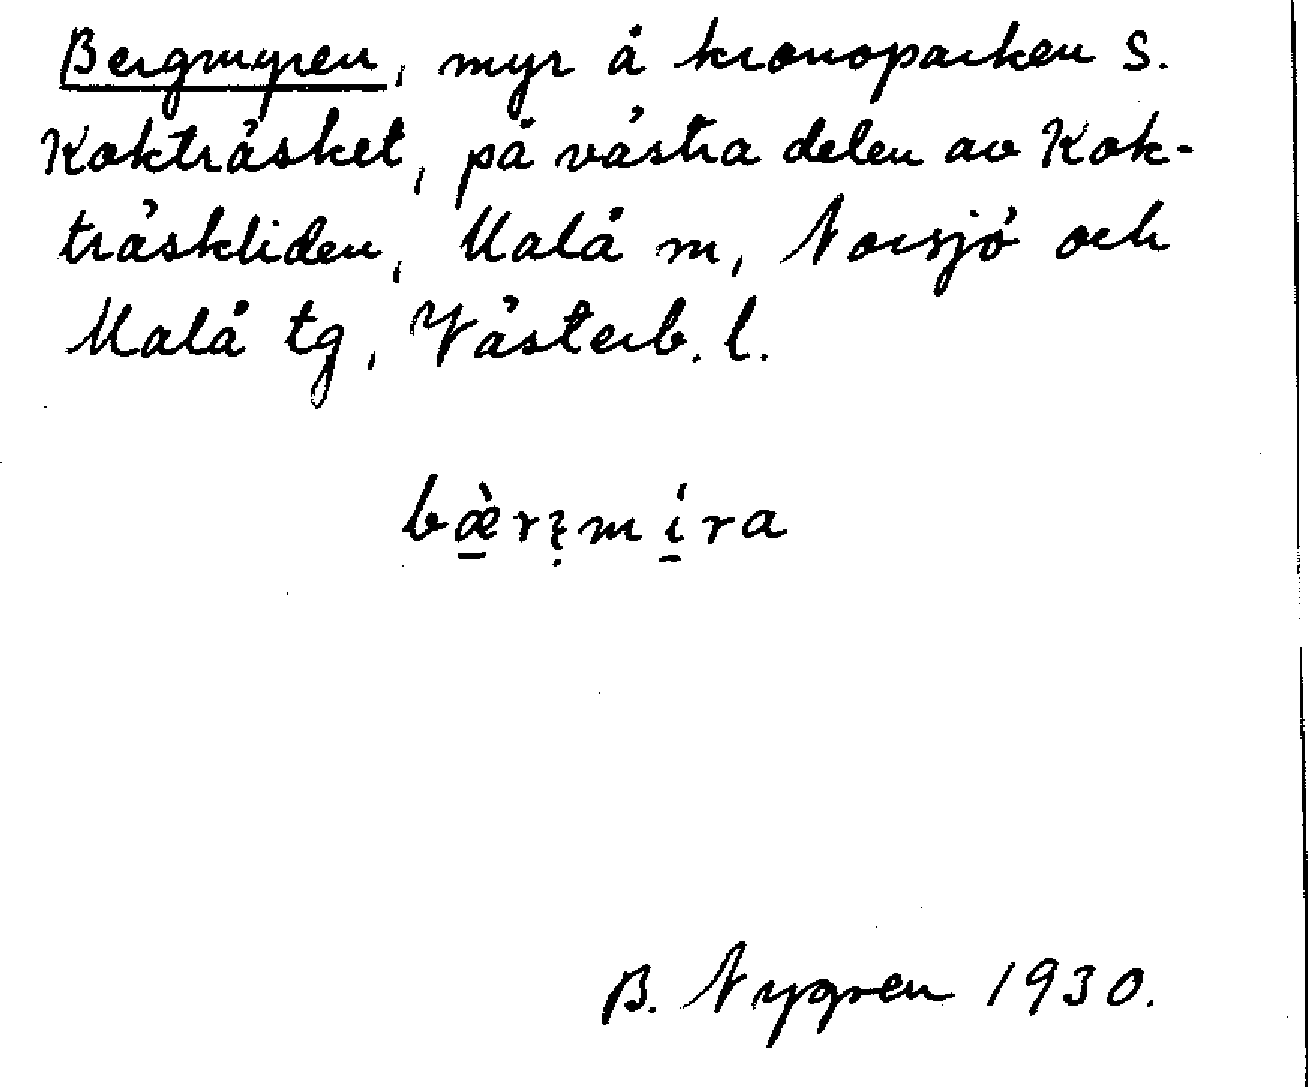 Bergmyren, myr å kronoparken S.
Kokträsket, på västra delen av Kok-
träskliden, Malå m, Norsjö och
Malå tg, Västerb. l.
bæ̱̀rı̨̣mí̱ra
B. Nygren 1930.